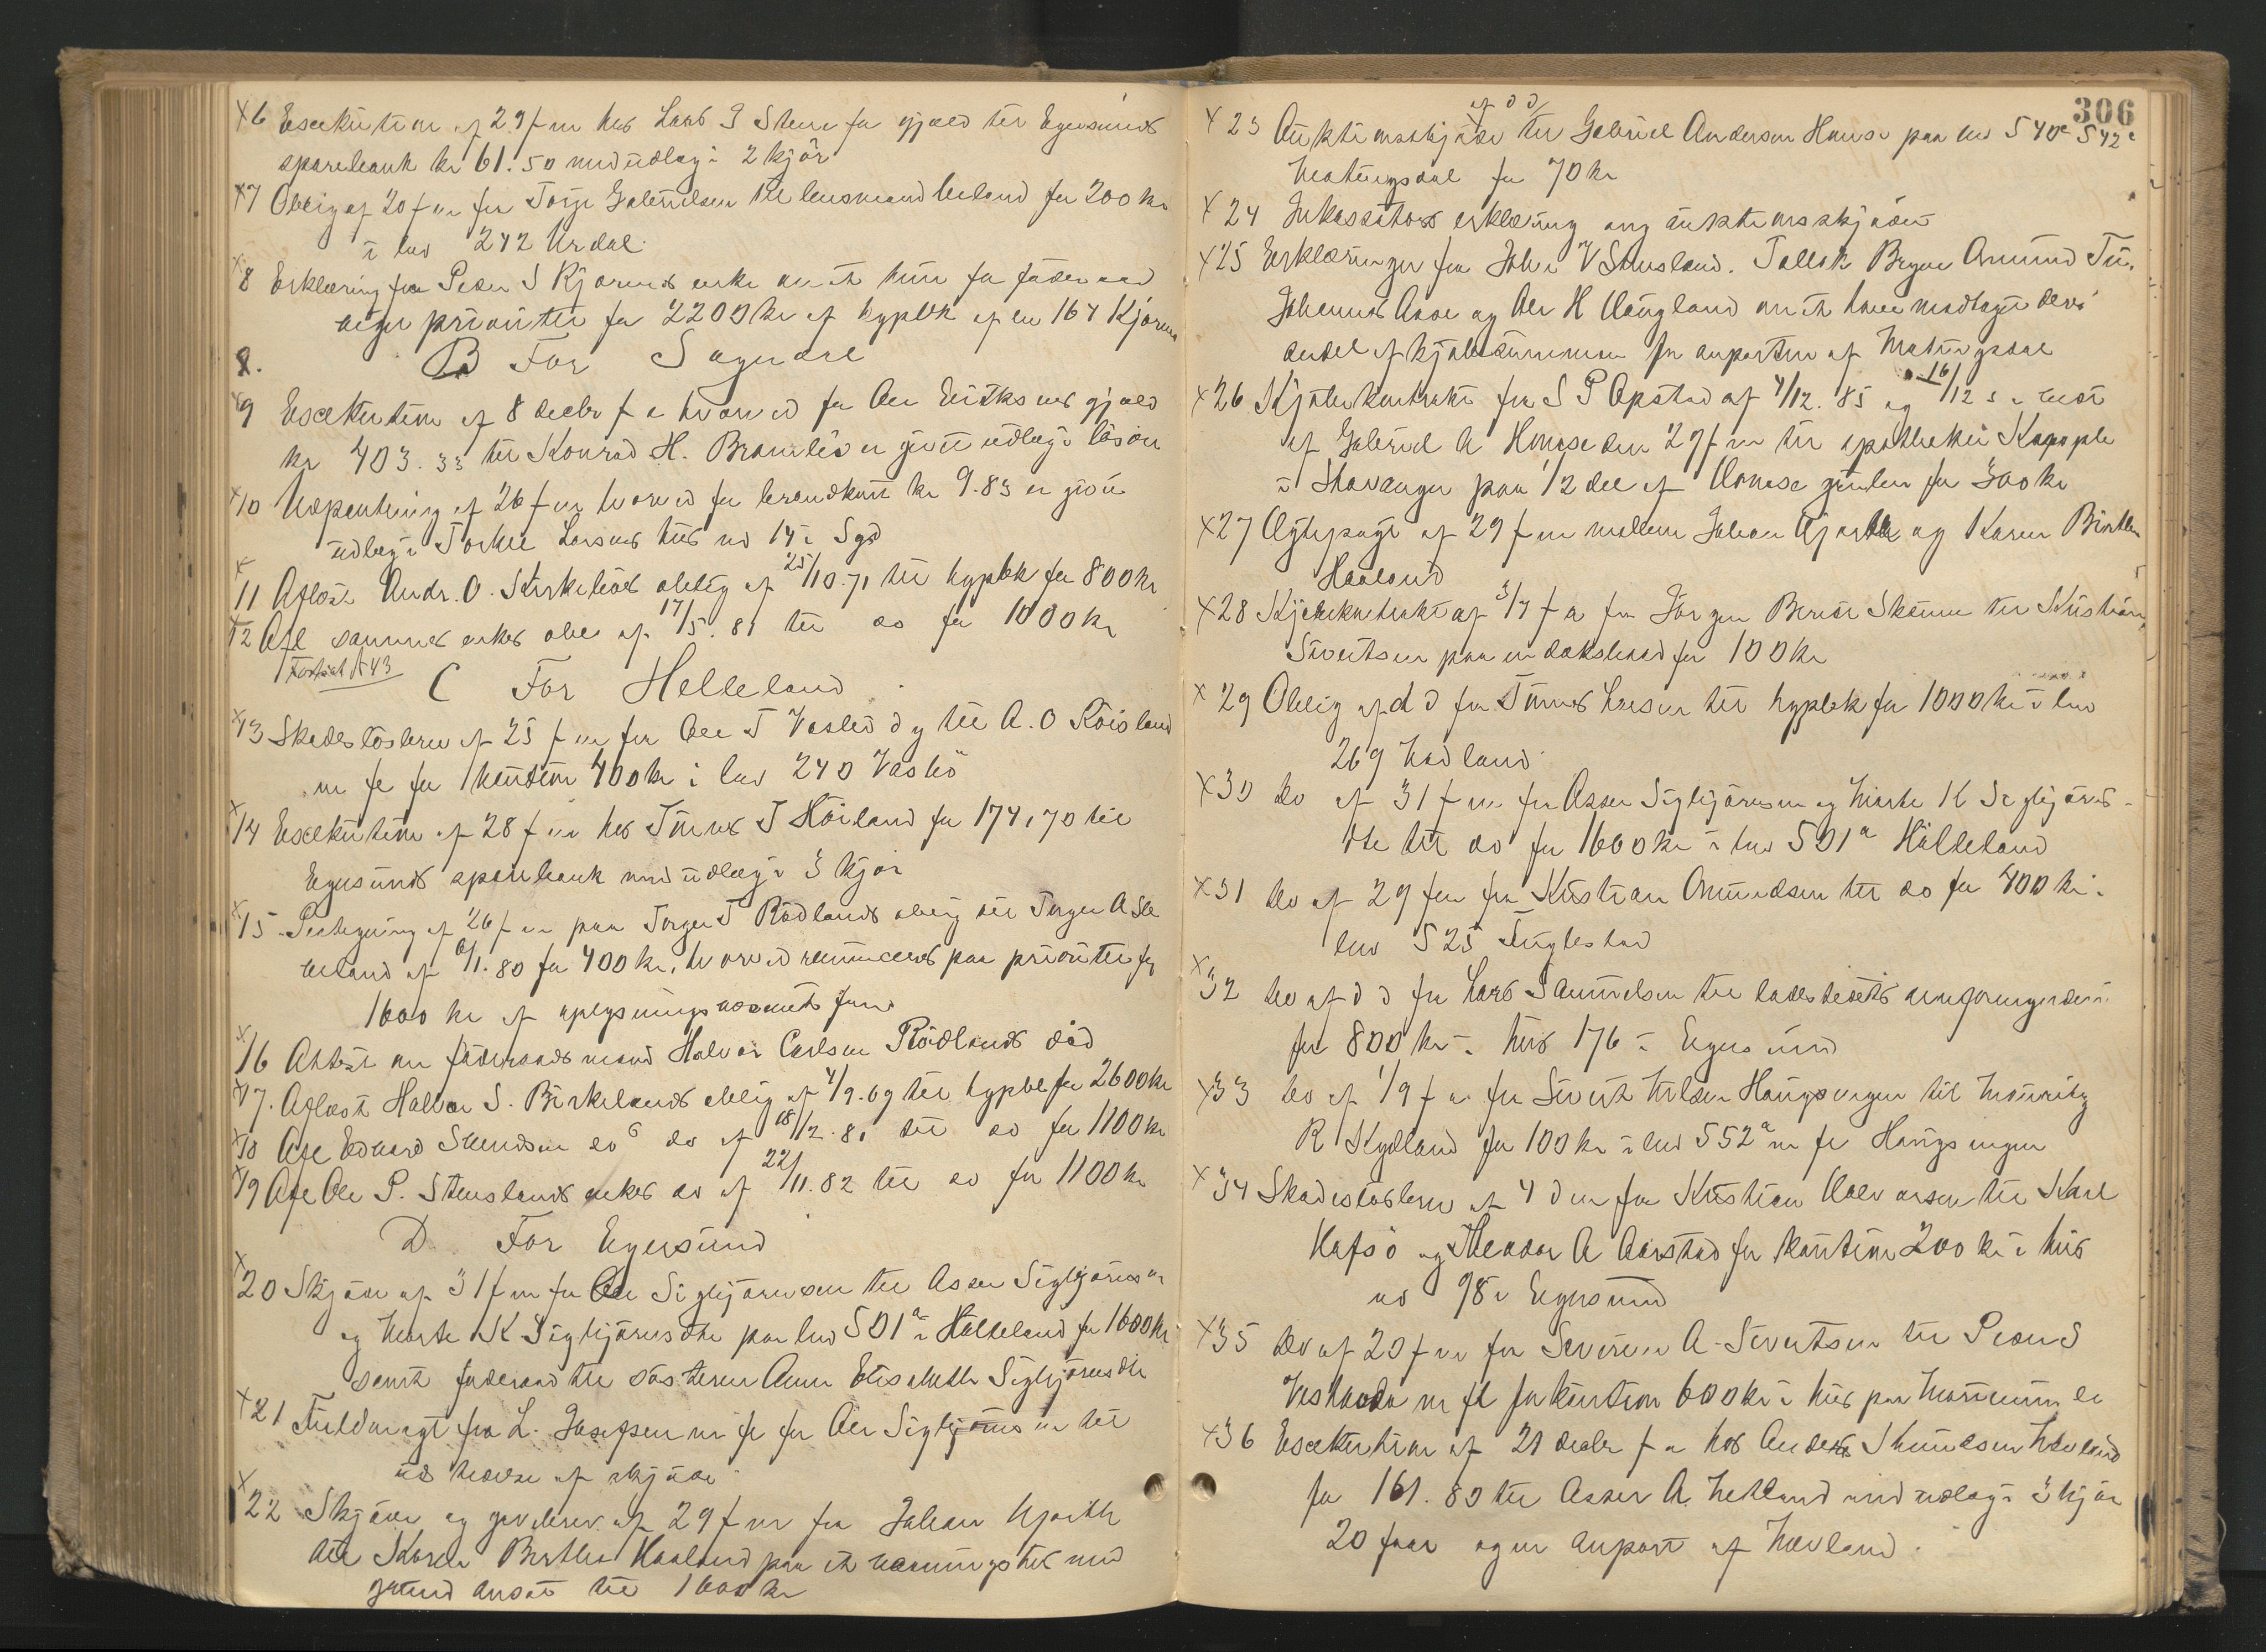 x6 Exekution af 29 f m hos Lars S Stene for gjæld til Egersunds
sparebank kr 61.50 med udlæg i 2 kjør
x7 Oblig af 20 f m fra Torje Gabrielsen til lensmand for 200 kr
i lno 242 Urdal
x8 Erklæring fra Peder S enke om at hun for føderaad
viger prioritet for 2200 kr af hypbk af lno 164
8. B For Sogndal
x9 Exekution af 8 decbr f a hvorved for Ole Eriksens gjæld
kr 403.33 til Konrad H. er givet udlæg i løsøre
x10 Udpantning af 26 f m hvorved for brandkont kr 9.83 er givet
udlæg i Torkel Larsens hus no 14 i Sgd
x11 Aflæst Andr. O. oblig af 25/10.71 til hypbk for 800 kr
x12 Afl sammes enkes obl af 17/5.81 til do for 1000 kr
Fortsat 543 C For Helleland
x13 Skadesløsbrev af 25 f m fra Ole T Vasbø d y til A. O Røisland
m fl for kaution 400 kr i lno 240 Vasbø
x14 Exekution af 28 f m hos Tønnes T Høiland for 174,70 til
Egersunds sparebank med udlæg i 3 kjør
x15 Paategning af 26 f m paa Torger T Rødlands oblig til Torger A
af 6/1.80 for 400 kr, hvorved renunceres paa prioritet for
1600 kr af oplysningsvæsenets fond
x16 Attest om føderaadsmand Halvor Carlsen Rødlands død
x17. Aflæst Halvor S. Birkelands oblig af 4/9.69 til hypbk for 2600 kr
x18 Afl Edvard Svendsen do do af 18/2.81 til do for 1100 kr
x19 Afl Ole P. Stenslands enkes do af 22/11.82 til do for 1100 kr
D. For Egersund
x20 Skjøde af 31 f m fra Ole Sigbjørnsen til Asser Sigbjørnsen
og Marte K Sigbjørnsdtr paa lno 501a i Hølleland for 1600 kr
samt føderaad til søsteren Anne Elisabeth Sigbjørnsdtr
x21 Fuldmagt fra L. Josefsen m fl for Ole Sigbjørnsen til
udstedelse af skjøde
x22 Skjøde og gavebrev af 29 f m fra Johan Hjorth
til Karen Bertha Haaland paa et vaaningshus med
grund ansat til 1600 kr
306
af d d
x23 Auktionsskjøde til Gabriel Andersen Homse paa lno 540c 542c
Matingsdal for 70 kr
x24 Inkassators erklæring ang auktionsskjøde
x25 Erklæringer fra Johan V Stensland. Tollak Birger Omund Tu.
Johannes Aase og Ole H Haugland om at have modtaget deres
andel af kjøbesummen for anparten af Matingsdal
x26 Kjøbekontrakt fra S P Opstad af 4/12.85 og 16/12 s a
af Gabriel A Homse den 29 f m til apotheker
i Stavanger paa 1/2 del af Homse gruber for 300 kr
x27 Ægtepagt af 29 f m mellem Johan Hjorth og Karen Bertha
Haaland
x28 Kjøbekontrakt af 3/7 f a fra Jørgen Skaara til Kristian
Sivertsen paa en for 100 kr
x29 Oblig af d d fra Tønnes Larsen til hypbk for 1000 kr i lno
269 Hadland
x30 Do af 31 f m fra Asser Sigbjørnsen og Marte K Sigbjørns-
dtr til do for 1600 kr i lno 501a Hølleland
x31 Do af 29 f m fra Kristian Omundsen til do for 400 kr i
lno 525 Tuglestad
x32 Do af d d fra Lars Samuelsen til ladestedets
for 800 kr i hus 176 i Egersund
x33 Do af 1/9 f a fra Sivert Nilsen til Mauritz
R Kydland for 100 kr i lno 552a m fl
x34 Skadesløsbrev af 4 d m fra Kristian Halvorsen til Karl
Hafsø og Theodor A Aarstad for kaution 200 kr i hus
no 98 i Egersund
x35 Do af 20 f m fra Severin A. Sivertsen til Peder S
m fl for kaution 600 kr i hus paa
x36 Exekution af 21 decbr f a hos Anders Hovland
for 161.80 til Asser A. Hetland med udlæg i 3 kjør
20 faar og en anpart af Hovland